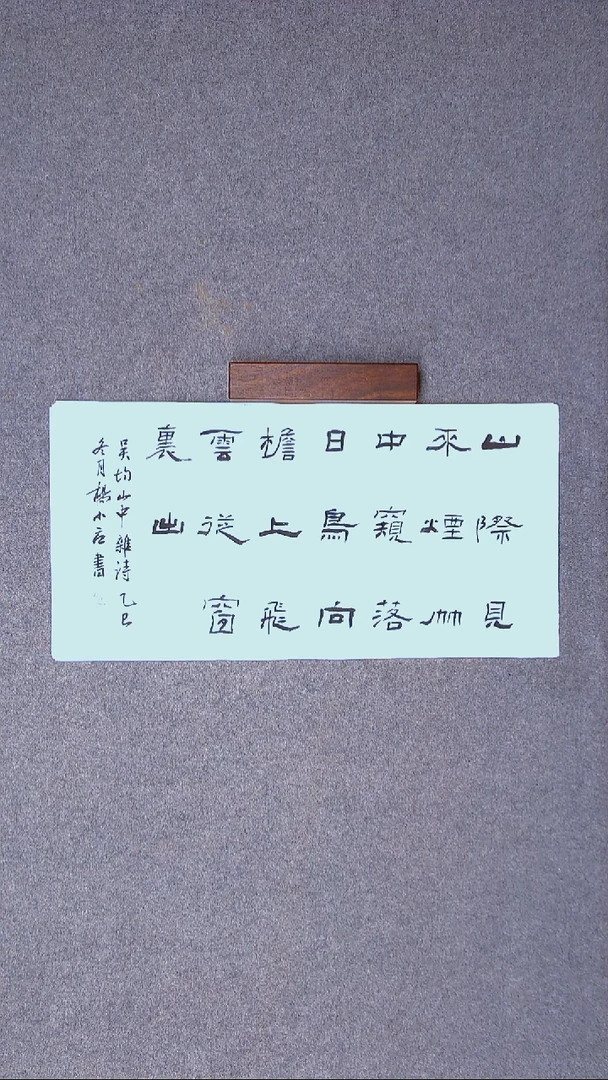 山際見
来煙竹
中窺落
日鳥向
檐上飛
雲從窗
裏出
吴均山中雜诗乙巳
冬月楊小書